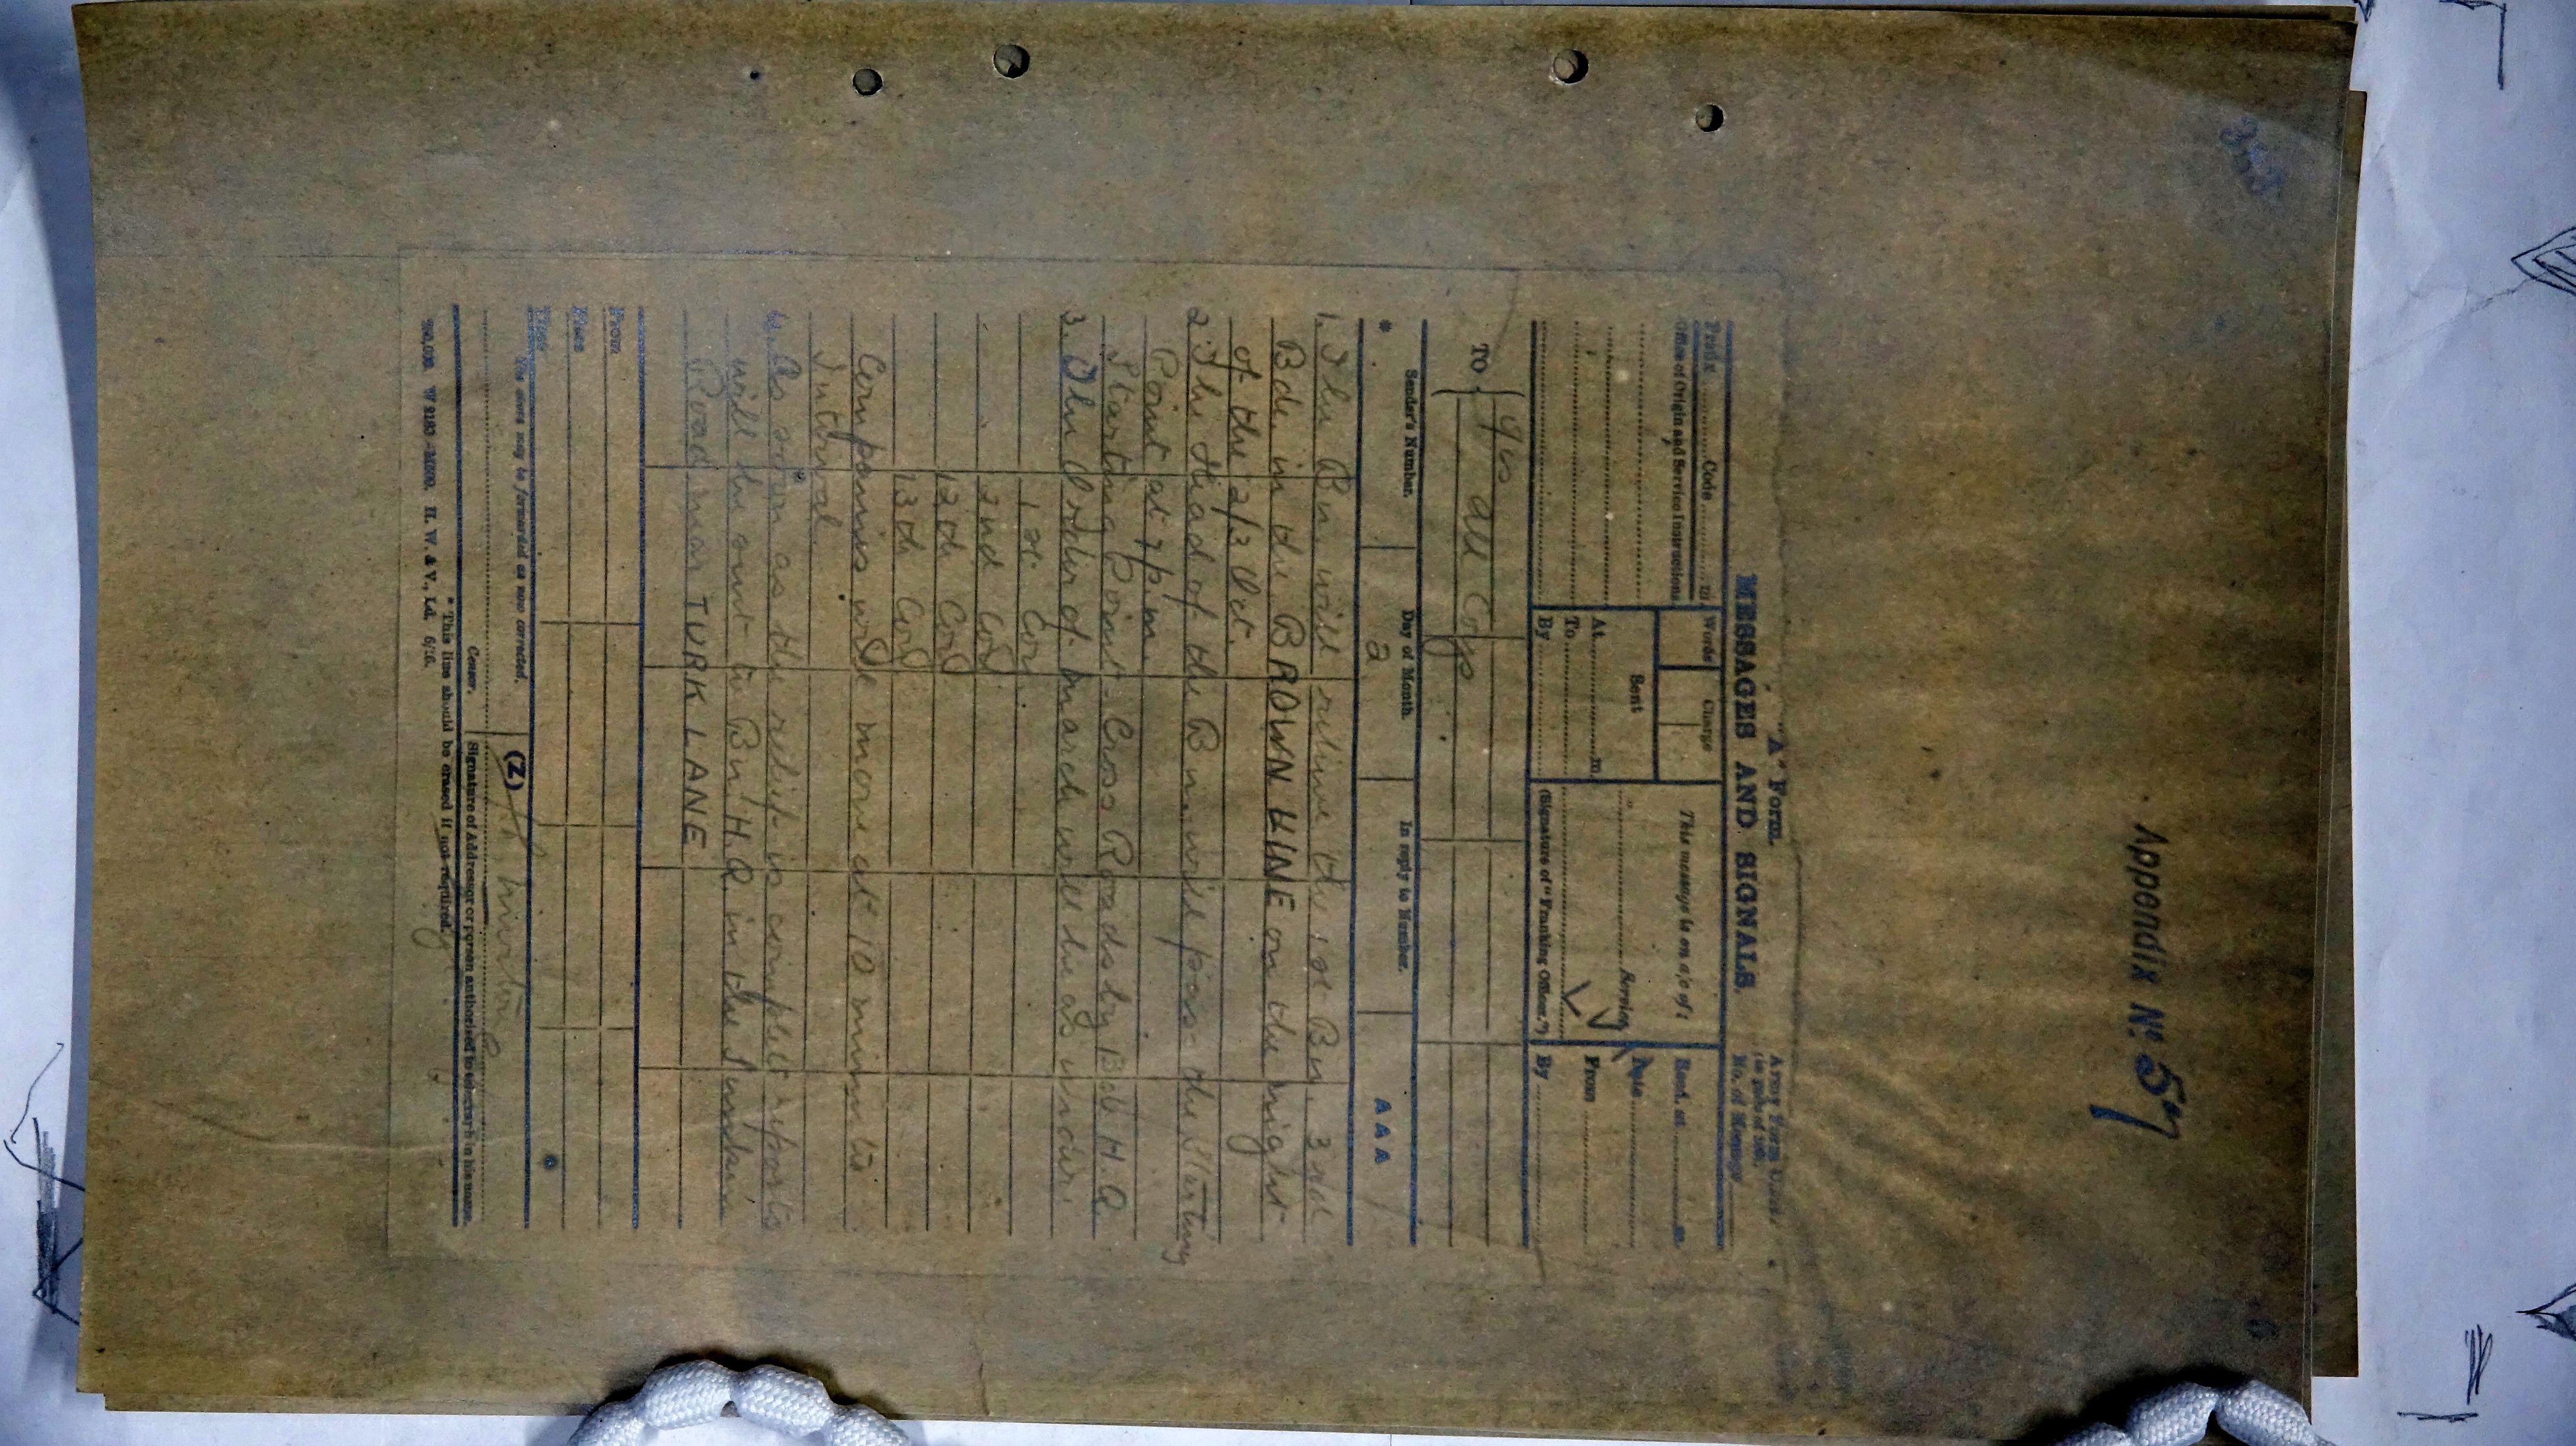 Appendix No. 57
"A" Form.
MESSAGES AND SIGNALS.
Army Form
No. of Message
Prefix ........ Code ........ m.
Words
Charge
This message is on a/c of:
Recd. at ........ m.
Office of Origin and Service Instructions
Sent
Service
Date
At ........ m.
From
To
By
(Signature of "Franking Officer.")
By
TO
All Coys
Sender's Number.
Day of Month.
In reply to Number.
AAA
*
2
1. The Bn. will relieve the 1st Bn. 3rd
Bde. in the BROWN LINE on the night
of the 2/3 Oct.
2. The Head of the Bn. will pass the Starting
Point at 7 p.m.
Starting Point – Cross Roads by Bde H.Q.
3. The Order of march will be as under:
1st Coy
2nd Coy
12th Coy
13th Coy
Companies will move at 10 minutes
Interval.
4. As soon as the relief is complete reports
will be sent to Bn. H.Q. in the Sunken
Road near TURK LANE
From
Place
Time
The above may be forwarded as now corrected.
(Z)
Censor.
Signature of Addressor or person authorised to telegraph in his name.
* This line should be erased if not required.
H. W. & V., Ld. 6/16.